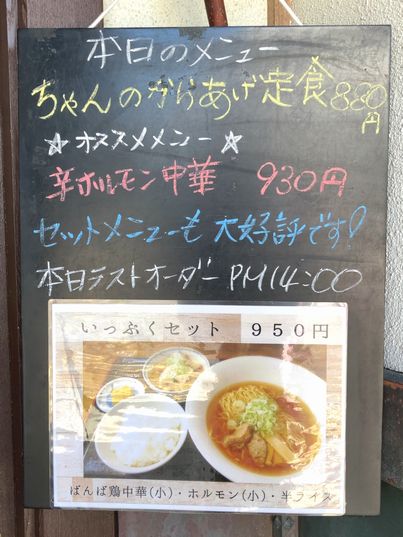 本日のメニュー
ちゃんのからあげ定食880円
☆オススメメニー☆
辛ホルモン中華 930円
セットメニューも大好評です!
本日ラストオーダーPM14:00
いっぷくセット 950円
ばんば鶏中華(小)・ホルモン(小)・半ライス